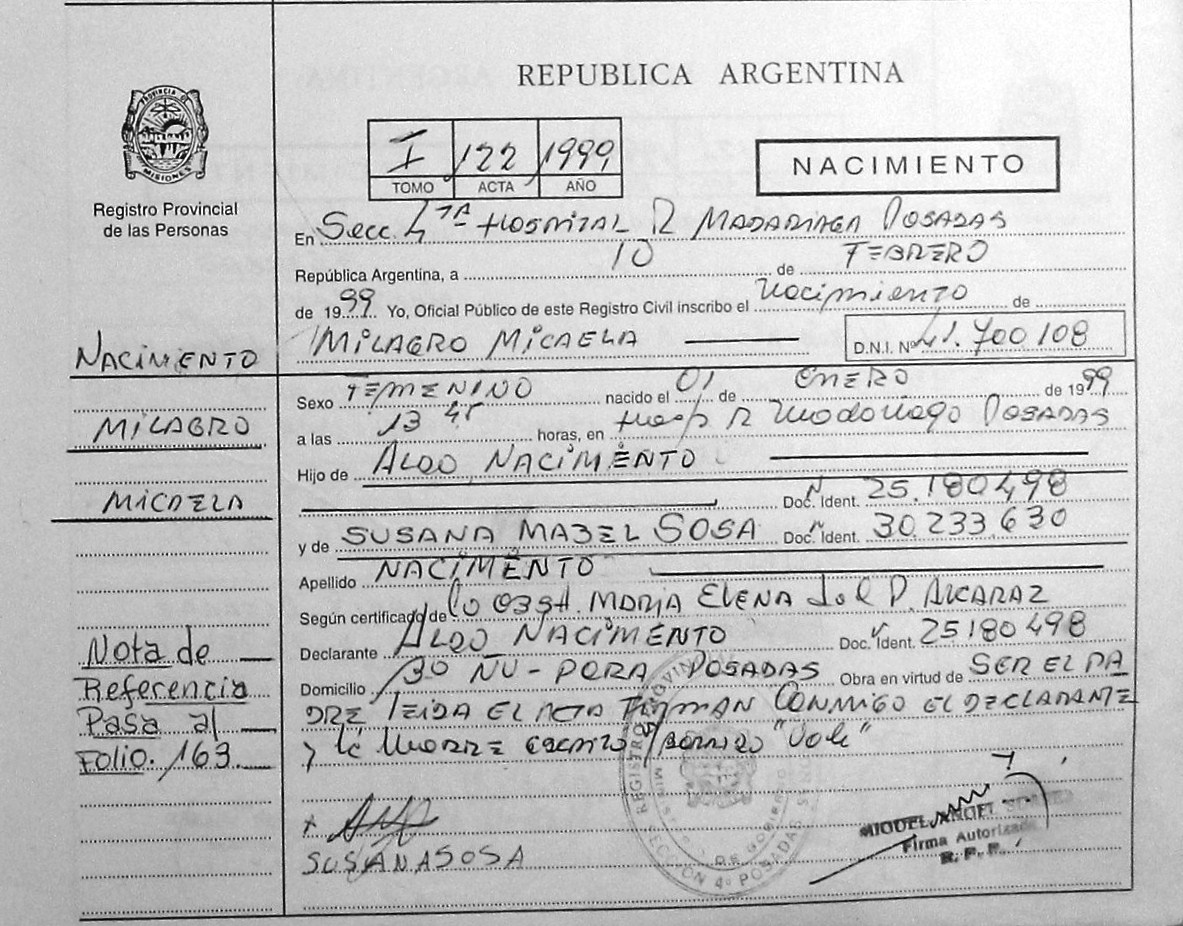 REPUBLICA ARGENTINA
PROVINCIA DE MISIONES
Registro Provincial
de las Personas
I 122 1999
TOMO ACTA AÑO
NACIMIENTO
En Secc. 4TA HOSPITAL R MADARIAGA POSADAS
República Argentina, a 10 de FEBRERO
de 1999. Yo, Oficial Público de este Registro Civil inscribo el Nacimiento de
MILAGRO MICAELA D.N.I. Nº 41.700108
NACIMENTO
MILAGRO
MICAELA
Sexo FEMENINO nacido el 01 de ENERO de 1999
a las 13 45 horas, en Hosp R Madariaga POSADAS
Hijo de ALDO NACIMENTO
Doc. Ident. 25.180498
y de SUSANA MABEL SOSA Doc. Ident. 30.233.630
Apellido NACIMENTO
Según certificado de MARIA ELENA D. ALCARAZ
Declarante ALDO NACIMENTO Doc. Ident. 25180498
Domicilio 30 ÑU-PORA POSADAS Obra en virtud de SER EL PA
DRE LEIDA EL ACTA FIRMAN CONMIGO EL DECLARANTE
y la MADRE
Nota de
Referencia
Pasa al
Folio. 163.
SUSANA SOSA
REGISTRO PROVINCIAL SECCIÓN 4º POSADAS
DE GOBIERNO
MIGUEL ANGEL
Firma Autorizada
R. P. P.